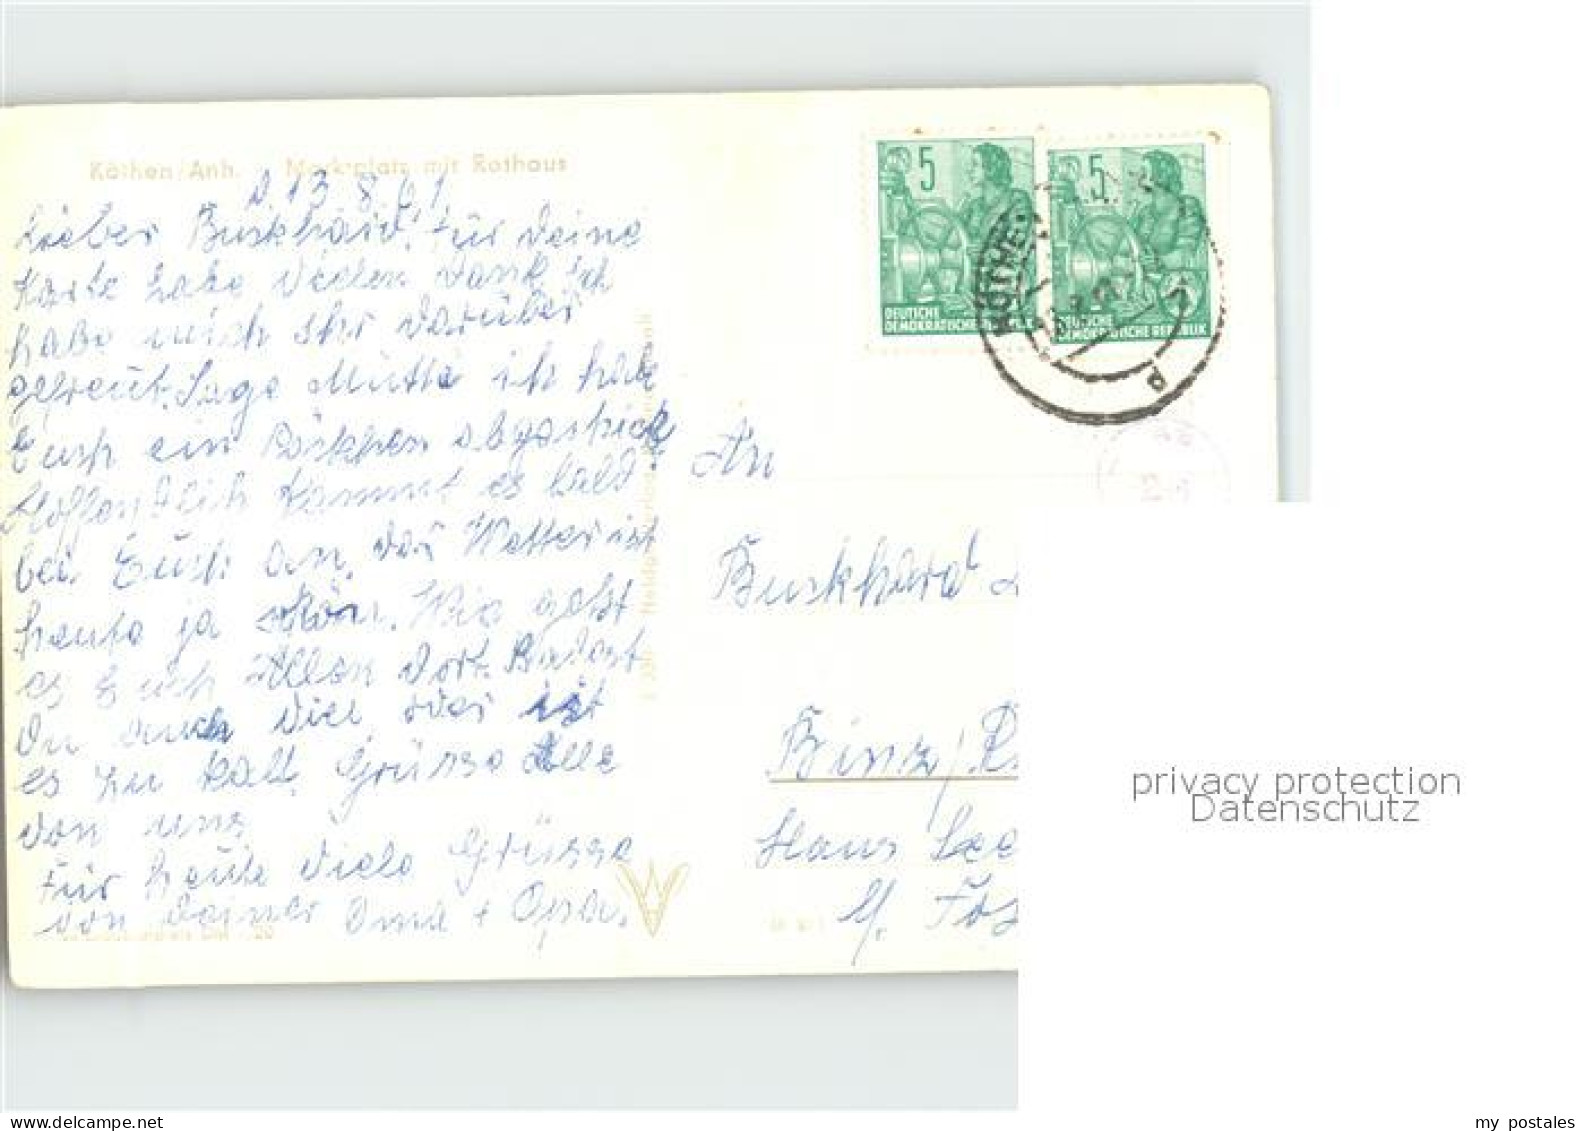 Köthen/Anh. Marktplatz mit Rathaus
d. 13.8.61
Lieber Burkhard! Für deine
Karte habe Vielen Dank ich
habe mich Shr darüber
gefreut. Sage Mutti ich habe
Euch ein Päckchen abgeschickt
Hoffendlich kommt es bald
bei Euch an, das Wetter ist
heute ja schön. Wie geht
es Euch Allen dort. Badest
Du auch Viel, oder ist
es zu kalt. Grüsse Alle
von uns
Für heute Viele Grüsse
von Deiner Oma + Opa.
5
DEUTSCHE
DEMOKRATISCHE REPUBLIK
5
DEUTSCHE
DEMOKRATISCHE REPUBLIK
KÖTHEN
An
Burkhard
Binz/R
Haus See
privacy protection
Datenschutz
my postales